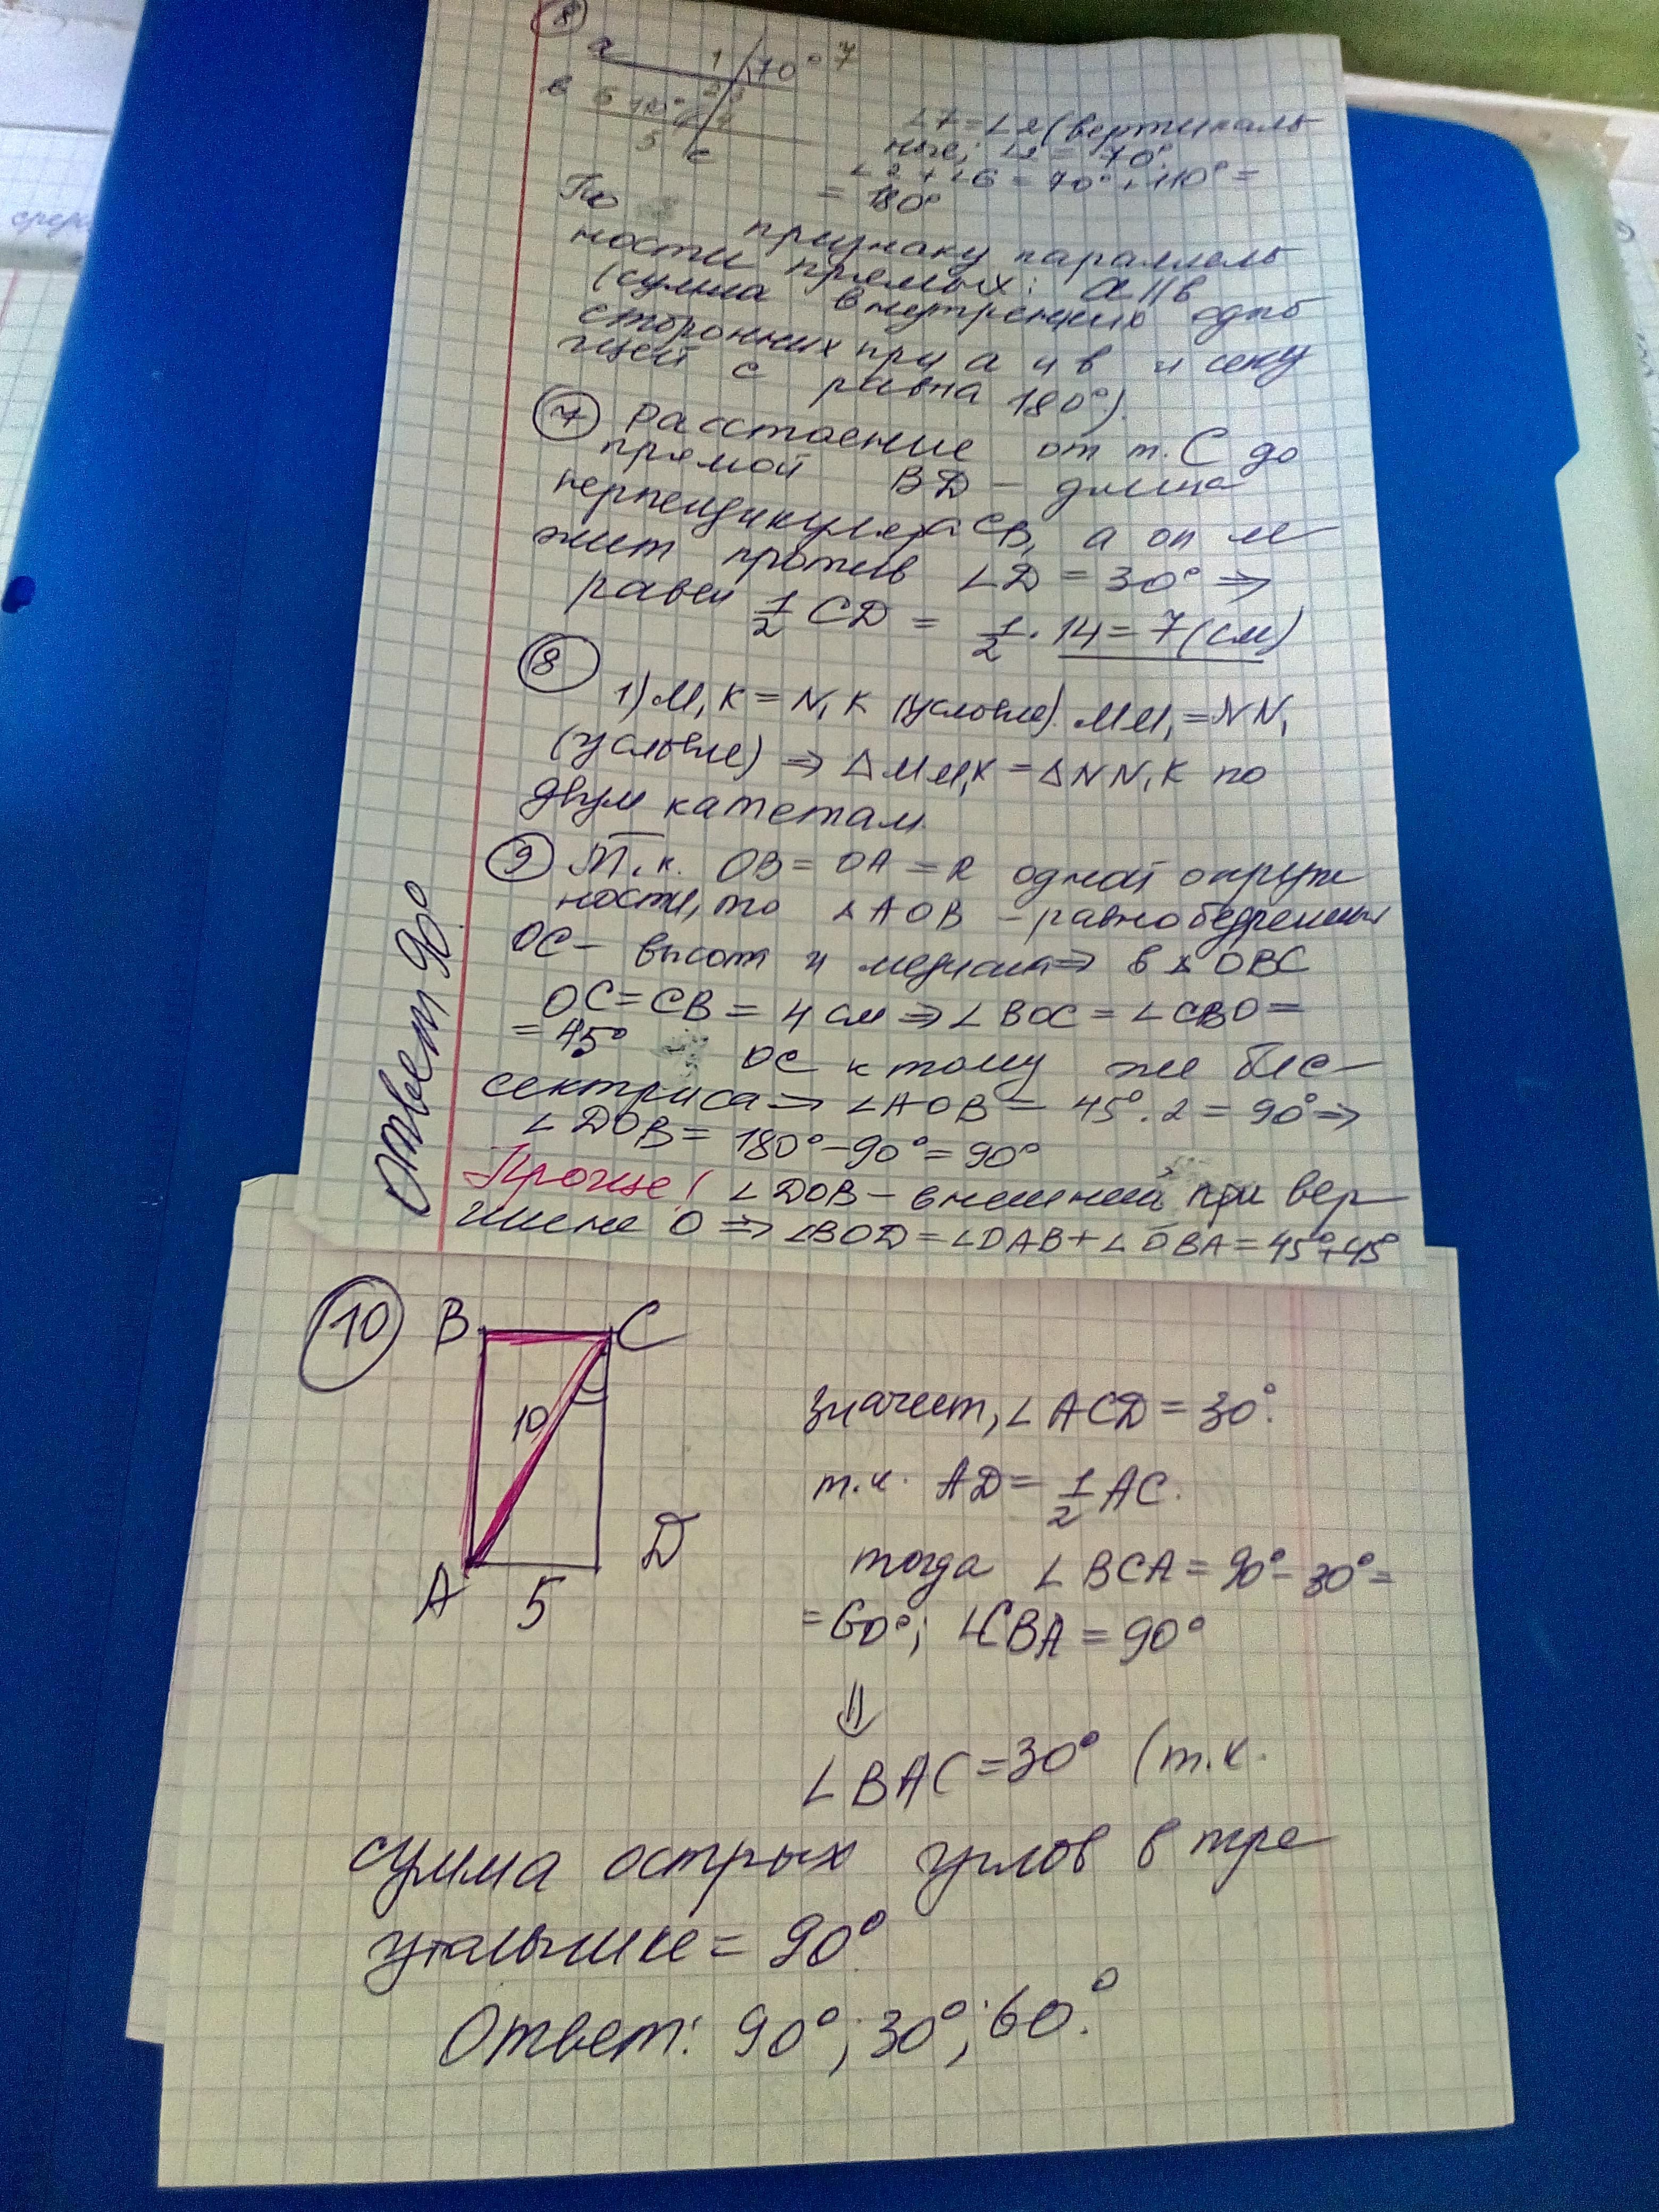 8
a
1
70° 7
2 3
в
6 110°
4
5
с
∠7=∠2 (вертикаль
ные; ∠2 = 70°.
∠2+∠6=70°+110°=
= 180°
По
признаку параллель
ности прямых: a||в
(сумма внутренних одно
сторонних при а и в и секу
щей с равна 180°).
7 Расстояние от т. С до
прямой BD – длина
перпендикуляра CB, а он ле
жит против ∠D = 30° ⇒
равен 1/2 CD = 1/2 · 14 = 7 (см)
8
1) M₁K = N₁K (условие). MM₁ = NN₁
(условие) ⇒ △MM₁K = △NN₁K по
двум катетам.
9 Т.к. OB = OA = R одной окруж
ности, то △AOB – равнобедренный
OC – высота и медиана ⇒ в △OBC
OC = CB = 4 см ⇒ ∠BOC = ∠CBO =
= 45°
OC к тому же бис-
сектриса ⇒ ∠AOB = 45° · 2 = 90° ⇒
∠DOB = 180° – 90° = 90°
Проще! ∠DOB – внешний при вер
шине O ⇒ ∠BOD = ∠DAB + ∠OBA = 45°+45°
Ответ, 90°
10
B C
10
A D
5
Значит, ∠ACD = 30°.
т.к. AD = 1/2 AC.
тогда ∠BCA = 90° – 30° =
= 60°; ∠CBA = 90°
⇓
∠BAC = 30° (т.к.
сумма острых углов в тре
угольнике = 90°
Ответ: 90°; 30°; 60°.